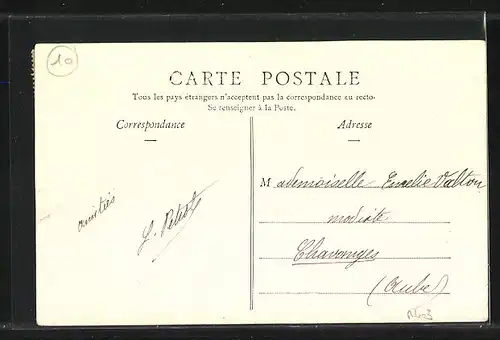 10
CARTE POSTALE
Tous les pays étrangers n'acceptent pas la correspondance au recto-
Se renseigner à la Poste.
Correspondance
Adresse
amitiés
Mademoiselle Emelie Valton
modiste
Chavanges
(Aube)